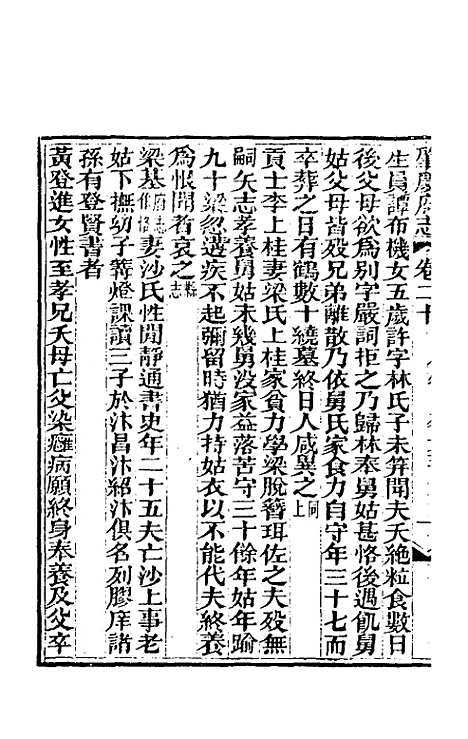 肇慶府志 卷二十
生員譚布機女五歲許字林氏子未笄聞夫夭絶粒食數日
後父母欲爲別字嚴詞拒之乃歸林奉舅姑甚恪後遇飢舅
姑父母皆殁兄弟離散乃依舅氏家食力自守年三十七而
卒葬之日有鶴數十繞墓終日人咸異之同上
貢士李上桂妻梁氏上桂家貧力學梁脫簪珥佐之夫殁無
嗣矢志孝養舅姑未幾舅没家益落苦守三十餘年姑年踰
九十梁忽遘疾不起彌留時猶力持姑衣以不能代夫終養
爲恨聞者哀之縣志
梁基妻沙氏性閒靜通書史年二十五夫亡沙上事老
姑下撫幼子篝燈課讀三子於汴昌汴紹汴俱名列膠庠諸
孫有登賢書者
黃登進女性至孝兄夭母亡父染癰病願終身奉養及父卒